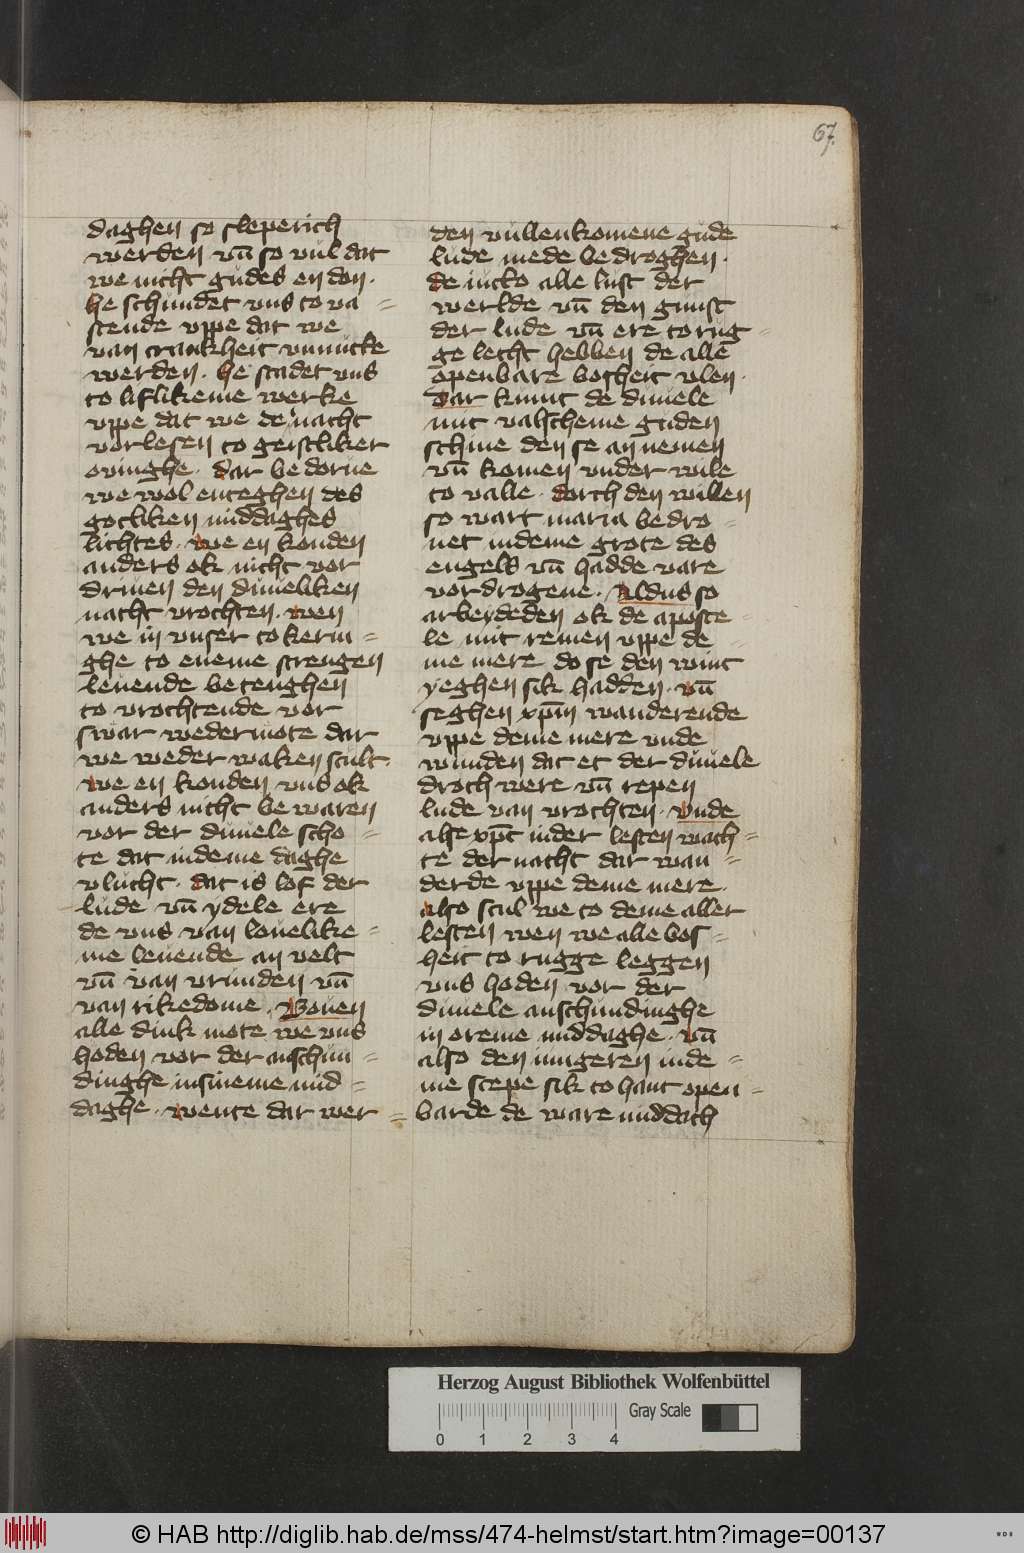 67.
daghen so sleperich
werden vn̄ so vul dat
we nicht gudes en don·
he schundet vns to va=
stende vppe dat we
van crankheit vnnutte
werden· he stadet vns
to liflikeme werke
vppe dat we de nacht
vorlesen to geistliker
ovinghe· dar be dorue
we wol enteghen des
gotliken middaghes
lichtes· we en konden
anders ok nicht vor
driuen den duueliken
nacht vrochten· wen
we in vnser to kerin=
ghe to eneme strengen
leuende betenghen
to vrochtende vor
swar wedermote dar
we weder waken scult·
we en konden vns ok
anders nicht be waren
vor der duuele scho=
te dat indeme daghe
vlucht· dat is lof der
lude vn̄ ydele ere
de vns van louelike=
me leuende an velt
vn̄ van vrunden vn̄
van rikedome· Bouen
alle dink mote we vns
hoden vor der anschun=
dinghe insineme mid=
daghe· wente dar wer=
den vullenkomene gude
lude mede bedroghen·
de iucto alle lust der
werlde vn̄ den gunst
der lude vn̄ ere to rug=
ge lecht hebben de alle
openbare bosheit vlen·
dar kumt de duuele
mit valscheme guden
schine den se an nemen
vn̄ komen vnder wile
to valle· dorch den willen
so wart maria bedro=
uet indeme grote des
engels vn̄ hadde vare
vor drogene· Aldus so
arbeydeden ok de aposte=
le mit remen vppe de=
me mere do se den wint
yeghen sik hadden· vn̄
seghen xp̄m wanderende
vppe deme mere vnde
wunden dat et der duuele
droch were vn̄ repen
lude van vrochten· vnde
alse xp̄c inder lesten wach=
te der nacht dar wan=
derde vppe deme mere·
also scul we to deme aller
lesten wen we alle bos=
heit to rugge leggen
vns hoden vor der
duuele anschundinghe
in oreme middaghe· vn̄
also den iungeren inde=
me scepe sik to hant open=
barde de ware middach
Herzog August Bibliothek Wolfenbüttel
0 1 2 3 4 Gray Scale
© HAB http://diglib.hab.de/mss/474-helmst/start.htm?image=00137